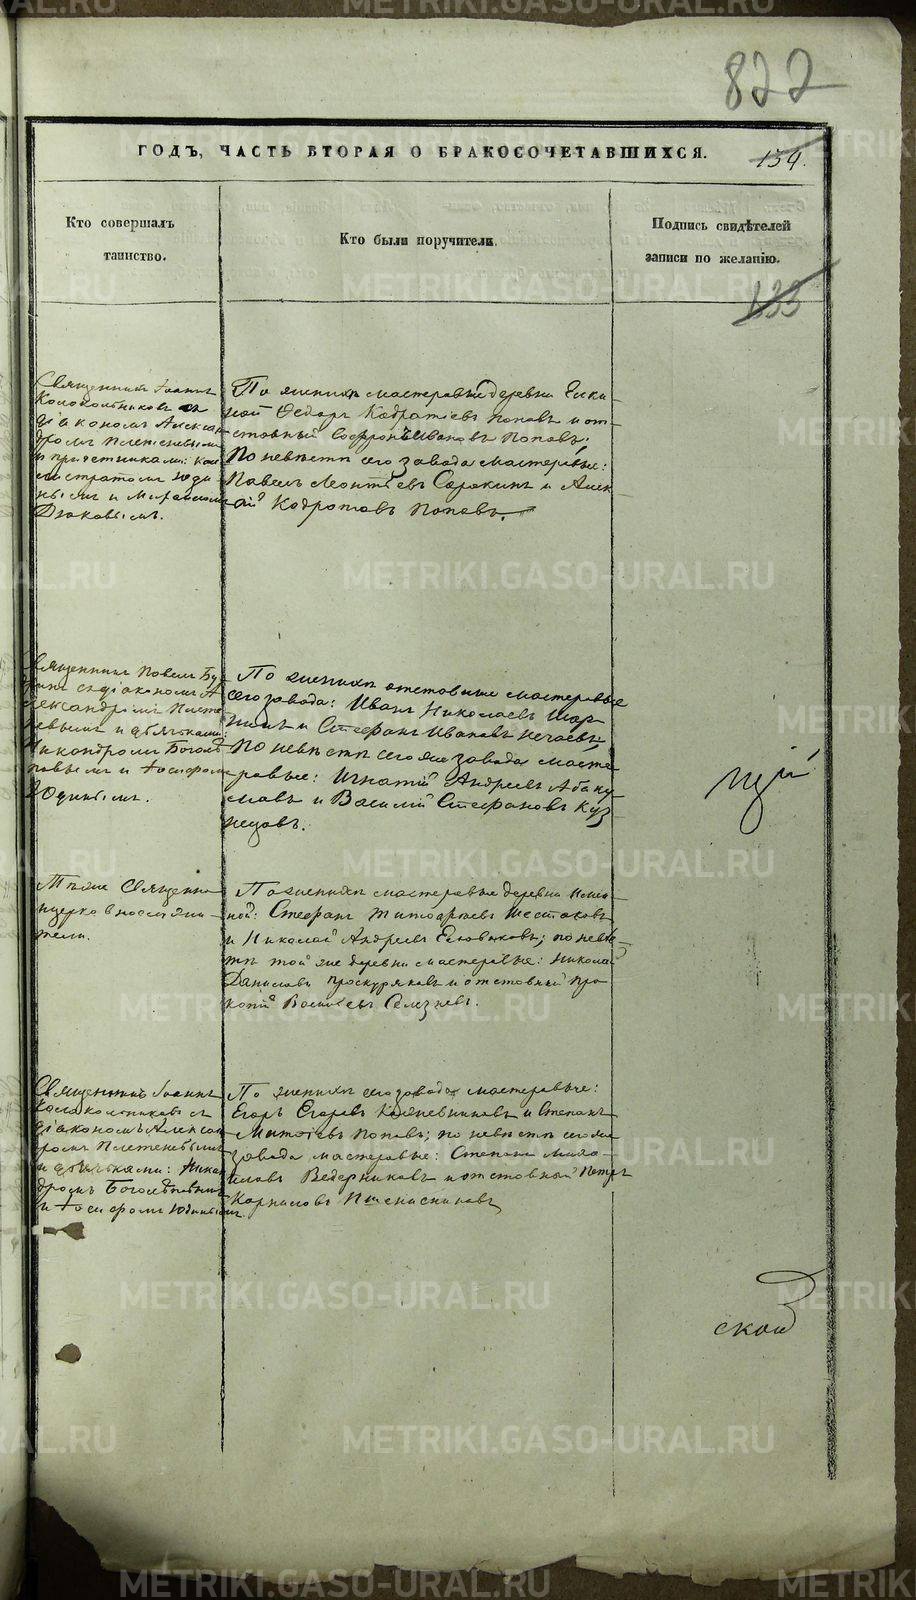 822
ГОДЪ, ЧАСТЬ ВТОРАЯ О БРАКОСОЧЕТАВШИХСЯ.
134.
Кто совершалъ
таинство.
Кто были поручители.
Подпись свидѣтелей
записи по желанію.
133
Священникъ Іоаннъ
Колокольниковъ съ
діакономъ Алексан
дромъ Плетеневымъ
и причетниками: Кал
листратомъ Юди
нымъ и
Дьяковымъ.
По женихѣ мастеровые деревни
ной Ѳедоръ Кодратіевъ Поповъ и от-
ставный Софронъ Ивановъ Поповъ;
По невѣстѣ сего завода мастеровые:
Павелъ Леонтіевъ Сорокинъ и Алек
ѣй Кодратовъ Поповъ.
Священникъ Павелъ Бу
съ діакономъ А
лександромъ Плете
невымъ и дьячками:
Никандромъ Боголѣ
повымъ и Іосифомъ
Юдинымъ.
По женихѣ отставные мастеровые
сего завода: Иванъ Николаевъ Шар
и Стефанъ Ивановъ Нечаевъ;
По невѣстѣ сего же завода масте
ровые: Игнатій Андреевъ Абаку
мовъ и Василій Стефановъ Куз
нецовъ.
цій
Тѣже Священно
и церковнослужи
тели.
По женихѣ мастеровые деревни
ной: Стефанъ Шестаковъ
и Николай Андреевъ по невѣ
стѣ той же деревни мастеровые: Николай
Даниловъ Проскуряковъ и отставный Про
копій Васильевъ Селезневъ.
Священникъ Іоаннъ
Колокольниковъ съ
діакономъ Алексан
ромъ Плетеневымъ
и дьячками: Никан
дромъ Боголѣповымъ
и Іосифомъ Юдинымъ.
По женихѣ сего завода мастеровые:
Егоръ Егоровъ Кожевниковъ и Степанъ
Матвѣевъ Поповъ; по невѣстѣ сего же
завода мастеровые: Степанъ Миха-
иловъ Ведерниковъ и отставный Петръ
Корниловъ Пшенисниковъ
ской
METRIKI.GASO-URAL.RU